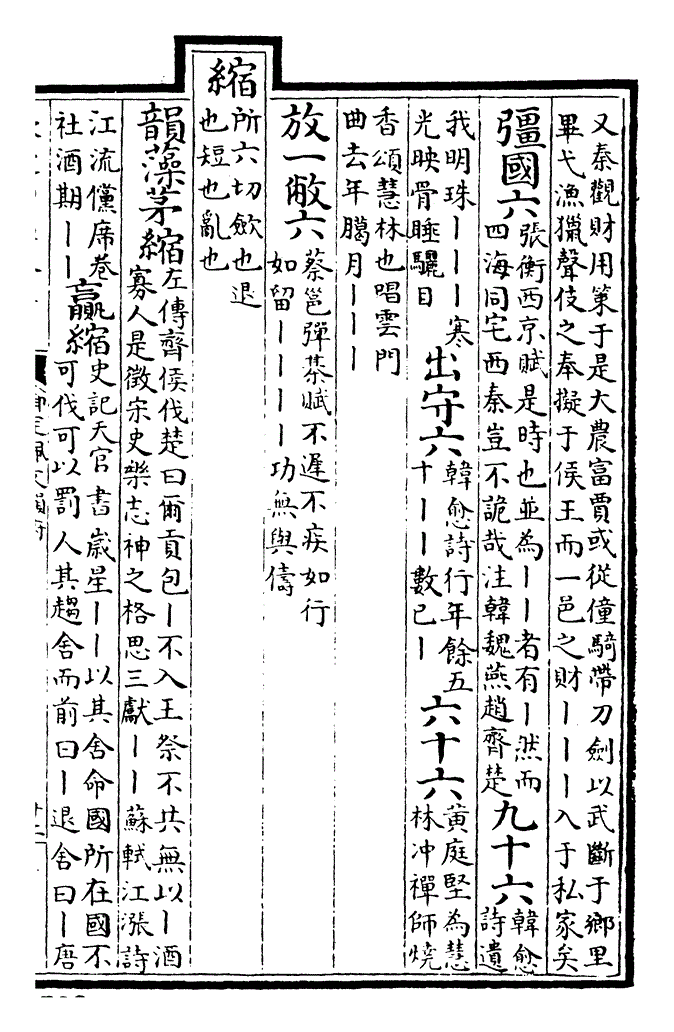 又秦觀財用策于是大農富賈或從僮騎帶刀劍以武斷于鄉里
畢弋漁獵聲伎之奉擬于侯王而一邑之財｜｜｜入于私家矣
彊國六
張衡西京賦是時也並為｜｜者有｜然而
四海同宅西秦豈不詭哉注韓魏燕趙齊楚
九十六
韓愈
詩遺
我明珠｜｜｜寒
光映骨睡驪目
出守六
韓愈詩行年餘五
十｜｜｜數已｜
六十六
黃庭堅為慧
林冲禪師燒
香頌慧林也唱雲門
曲去年臈月｜｜｜
放一敝六
蔡邕彈棊賦不遲不疾如行
如留｜｜｜｜功無與儔
縮
所六切歛也退
也短也亂也
韻藻茅縮
左傳齊侯伐楚曰爾貢包｜不入王祭不共無以｜酒
寡人是徵宋史樂志神之格思三獻｜｜蘇軾江漲詩
江流儻席卷
社酒期｜｜
贏縮
史記天官書歲星｜｜以其舍命國所在國不
可伐可以罰人其趨舍而前曰｜退舍曰｜唐